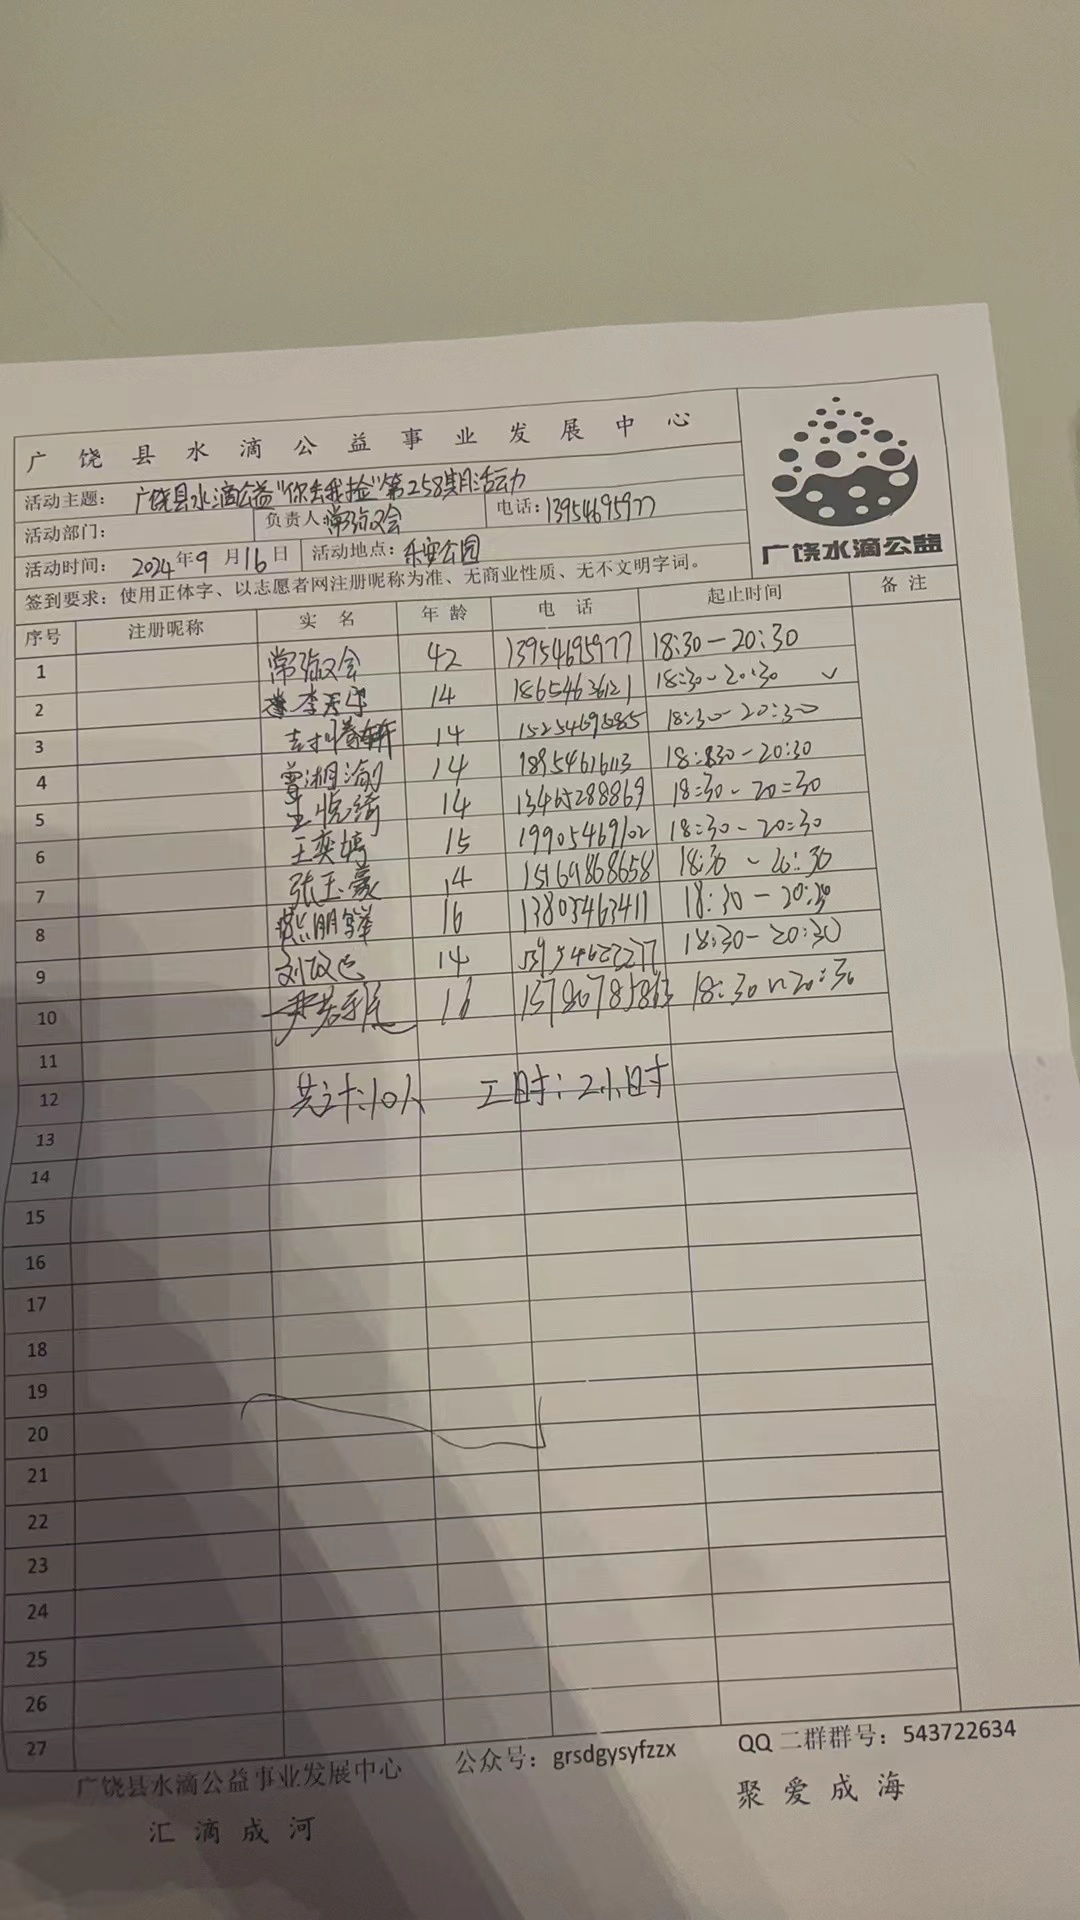 广饶县水滴公益事业发展中心
活动主题： 广饶县水滴公益"你丢我捡"第258期活动
活动部门： 负责人 常弥会 电话：13954695977
活动时间： 2024年9月16日 活动地点：乐安公园
签到要求：使用正体字、以志愿者网注册昵称为准、无商业性质、无不文明字词。
广饶水滴公益
序号 注册昵称 实名 年龄 电话 起止时间 备注
1 42 13954695977 18:30-20:30
2 14 18654636121 18:30-20:30 ✓
3 14 18:30-20:30
4 14 18954616113 20:30
5 王悦绮 14 13465288869 18:30-20:30
6 王奕婷 15 19905469102 18:30-20:30
7 张玉豪 14 15169868658 18:30~20:30
8 16 13805463411 18:30-20:30
9 14 18:30-20:30
10 16 18:30~20:30
11
12 共计:10人 工时：2小时
13
14
15
16
17
18
19
20
21
22
23
24
25
26
27
广饶县水滴公益事业发展中心 公众号：grsdgysyfzzx QQ二群群号：543722634
汇滴成河 聚爱成海